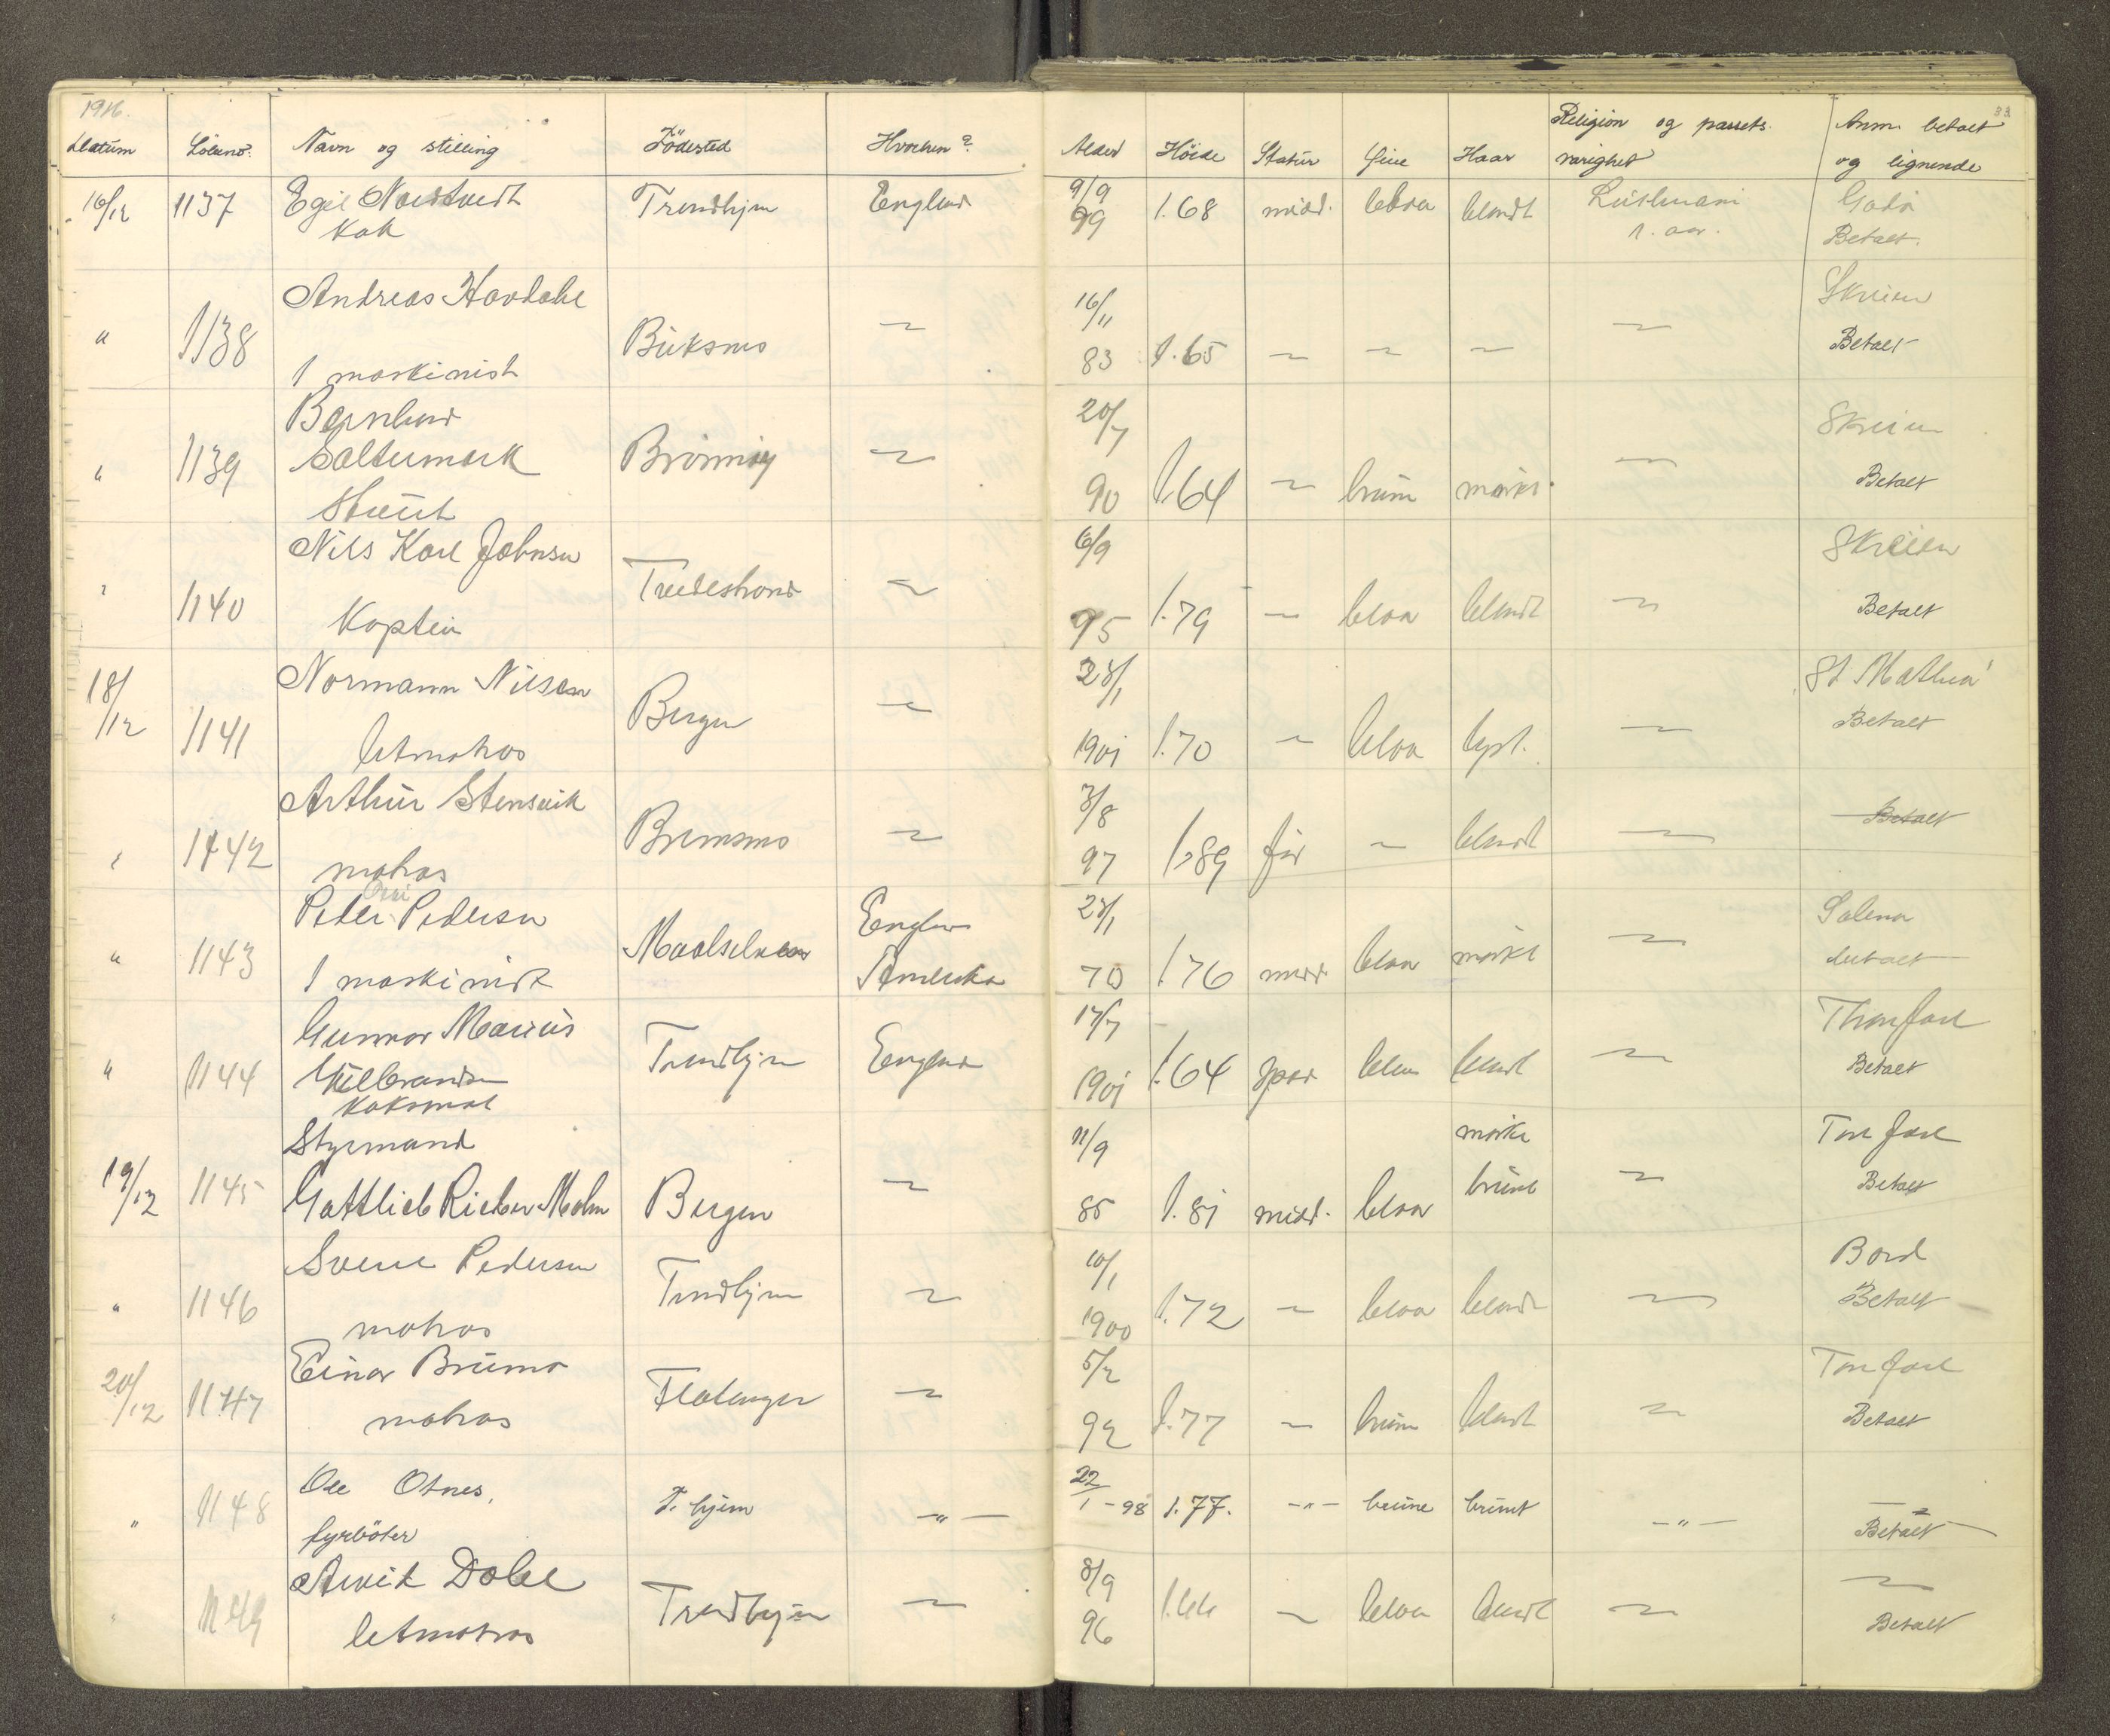 1916.
Datum Löbeno. Navn og stilling Födested Hvorhen? Alder Höide Statur Öine Haar Religion og passets varighet Anm. betalt og lignende
33
16/12 1137 Egil Nordtvedt Trondhjem England 9/9 99 1.68 midd. blaa blondt Lutheran Gada
Kok 1. aar. Betalt.
" 1138 Andreas Havdahl Buksnes ~ 16/11 83 1.65 ~ ~ ~ ~ Skreien
1 maskinist Betalt
" 1139 Bernhard Brönnöy ~ 20/7 90 1.64 ~ brune mörkt. ~ Skreien
Saltermark Betalt
Stuert
" 1140 Nils Karl Johnsen Tvedestrand ~ 6/9 95 1.79 ~ blaa blondt ~ Skreien
Kaptein Betalt
18/12 1141 Normann Nilsen Bergen ~ 28/1 1901 1.70 ~ blaa lyst. ~ St Mathew
letmatros Betalt
" 1142 Arthur Stensvik Bremsnes ~ 3/8 97 1.89 før ~ blondt ~ Betalt
matros
" 1143 Peter Pedersen Maalselven England 28/1 70 1.76 midd. blaa mörkt ~ Salena
1 maskinist Amerika betalt
" 1144 Gunnar Marius Trondhjem England 17/7 1901 1.64 spæd blaa blondt ~ Thor Jarl
Gulbrandsen Betalt
Koksmat
Styrmand
19/12 1145 Gottlieb Rieber Mohn Bergen ~ 11/9 85 1.81 midd. blaa mörke brunt ~ Tore Jarl
Betalt
" 1146 Sverre Pedersen Trondhjem ~ 10/1 1900 1.72 ~ blaa blondt ~ Bord
matros Betalt
20/12 1147 Einar Brumo Flatanger ~ 5/2 92 1.77 ~ brune blondt ~ Tore Jarl
matros Betalt
" 1148 Ole Otnes, T.hjem -"- 22/1 - 98 1.77. -"- brune brunt -"- ~
fyrböter Betalt
" 1149 Arvid Dahl Trondhjem ~ 8/9 96 1.66 ~ blaa blondt ~ ~
letmatros Betalt